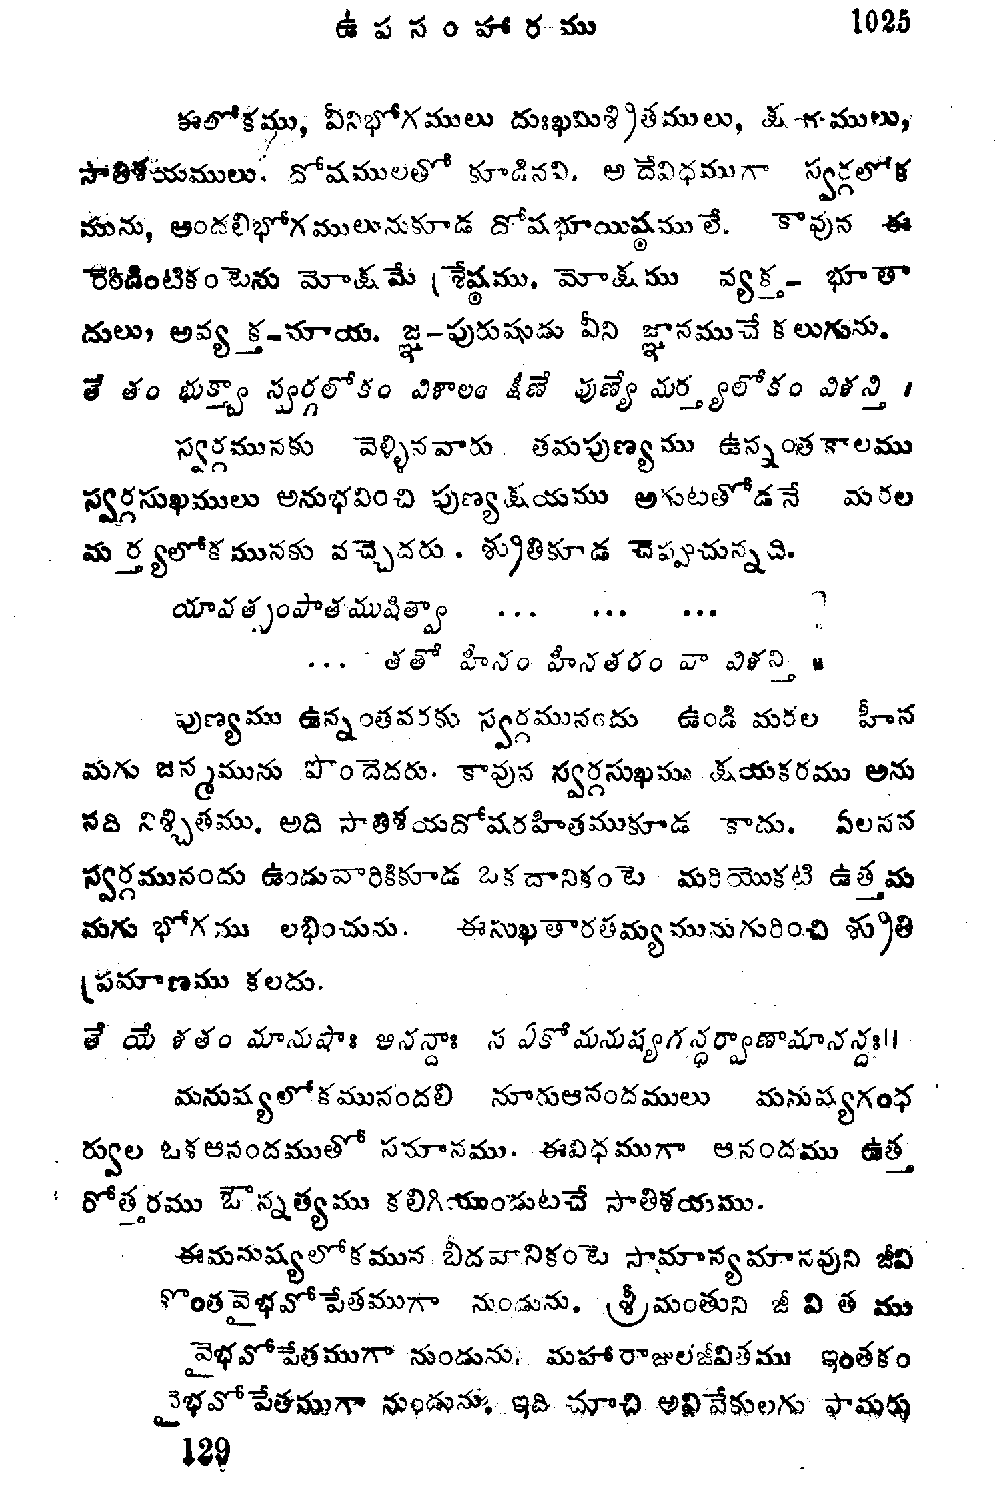 ఉపసంహారము 1025
ఈలోకము, వీనిభోగములు దుఃఖమిశ్రితములు, క్షగములు,
సాతిశయములు. దోషములతో కూడినవి. అ దేవిధముగా స్వర్గలోక
మును, అందలిభోగములునుకూడ దోషభూయిష్ఠములే. కావున ఈ
రెండింటికంటెను మోక్షమే శ్రేష్ఠము. మోక్షము వ్యక్త - భూతా
దులు, అవ్యక్త-మాయ. జ్ఞ-పురుషుడు వీని జ్ఞానముచే కలుగును.
తే తం భుక్త్వా స్వర్గలోకం విశాలం క్షీణే పుణ్యే మర్త్యలోకం విశన్తి ।
స్వర్గమునకు వెళ్ళినవారు తమపుణ్యము ఉన్నంతకాలము
స్వర్గసుఖములు అనుభవించి పుణ్యక్షయము అగుటతోడనే మరల
మర్త్యలోకమునకు వచ్చెదరు. శ్రుతికూడ చెప్పుచున్నది.
యావత్సంపాతముషిత్వా ... ... ... ।
... తతో హీనం హీనతరం వా విశన్తి ॥
పుణ్యము ఉన్నంతవరకు స్వర్గమునందు ఉండి మరల హీన
మగు జన్మమును పొందెదరు. కావున స్వర్గసుఖము క్షయకరము అను
నది నిశ్చితము. అది సాతిశయదోషరహితముకూడ కాదు. ఏలనన
స్వర్గమునందు ఉండువారికికూడ ఒకదానికంటె మరియొకటి ఉత్తమ
మగు భోగము లభించును. ఈసుఖతారతమ్యమునుగురించి శ్రుతి
ప్రమాణము కలదు.
తే యే శతం మానుషాః ఆనన్దాః స ఏకోమనుష్యగన్ధర్వాణామానన్దః॥
మనుష్యలోకమునందలి నూరుఆనందములు మనుష్యగంధ
ర్వుల ఒకఆనందముతో సమానము. ఈవిధముగా ఆనందము ఉత్త
రోత్తరము ఔన్నత్యము కలిగియుండుటచే సాతిశయము.
ఈమనుష్యలోకమున బీదవానికంటె సామాన్యమానవుని జీవి
కొంతవైభవోపేతముగా నుండును. శ్రీమంతుని జీవితము
వైభవోపేతముగా నుండును. మహారాజులజీవితము ఇంతకం
వైభవోపేతముగా నుండును. ఇది చూచి అవివేకులగు పామరు
129